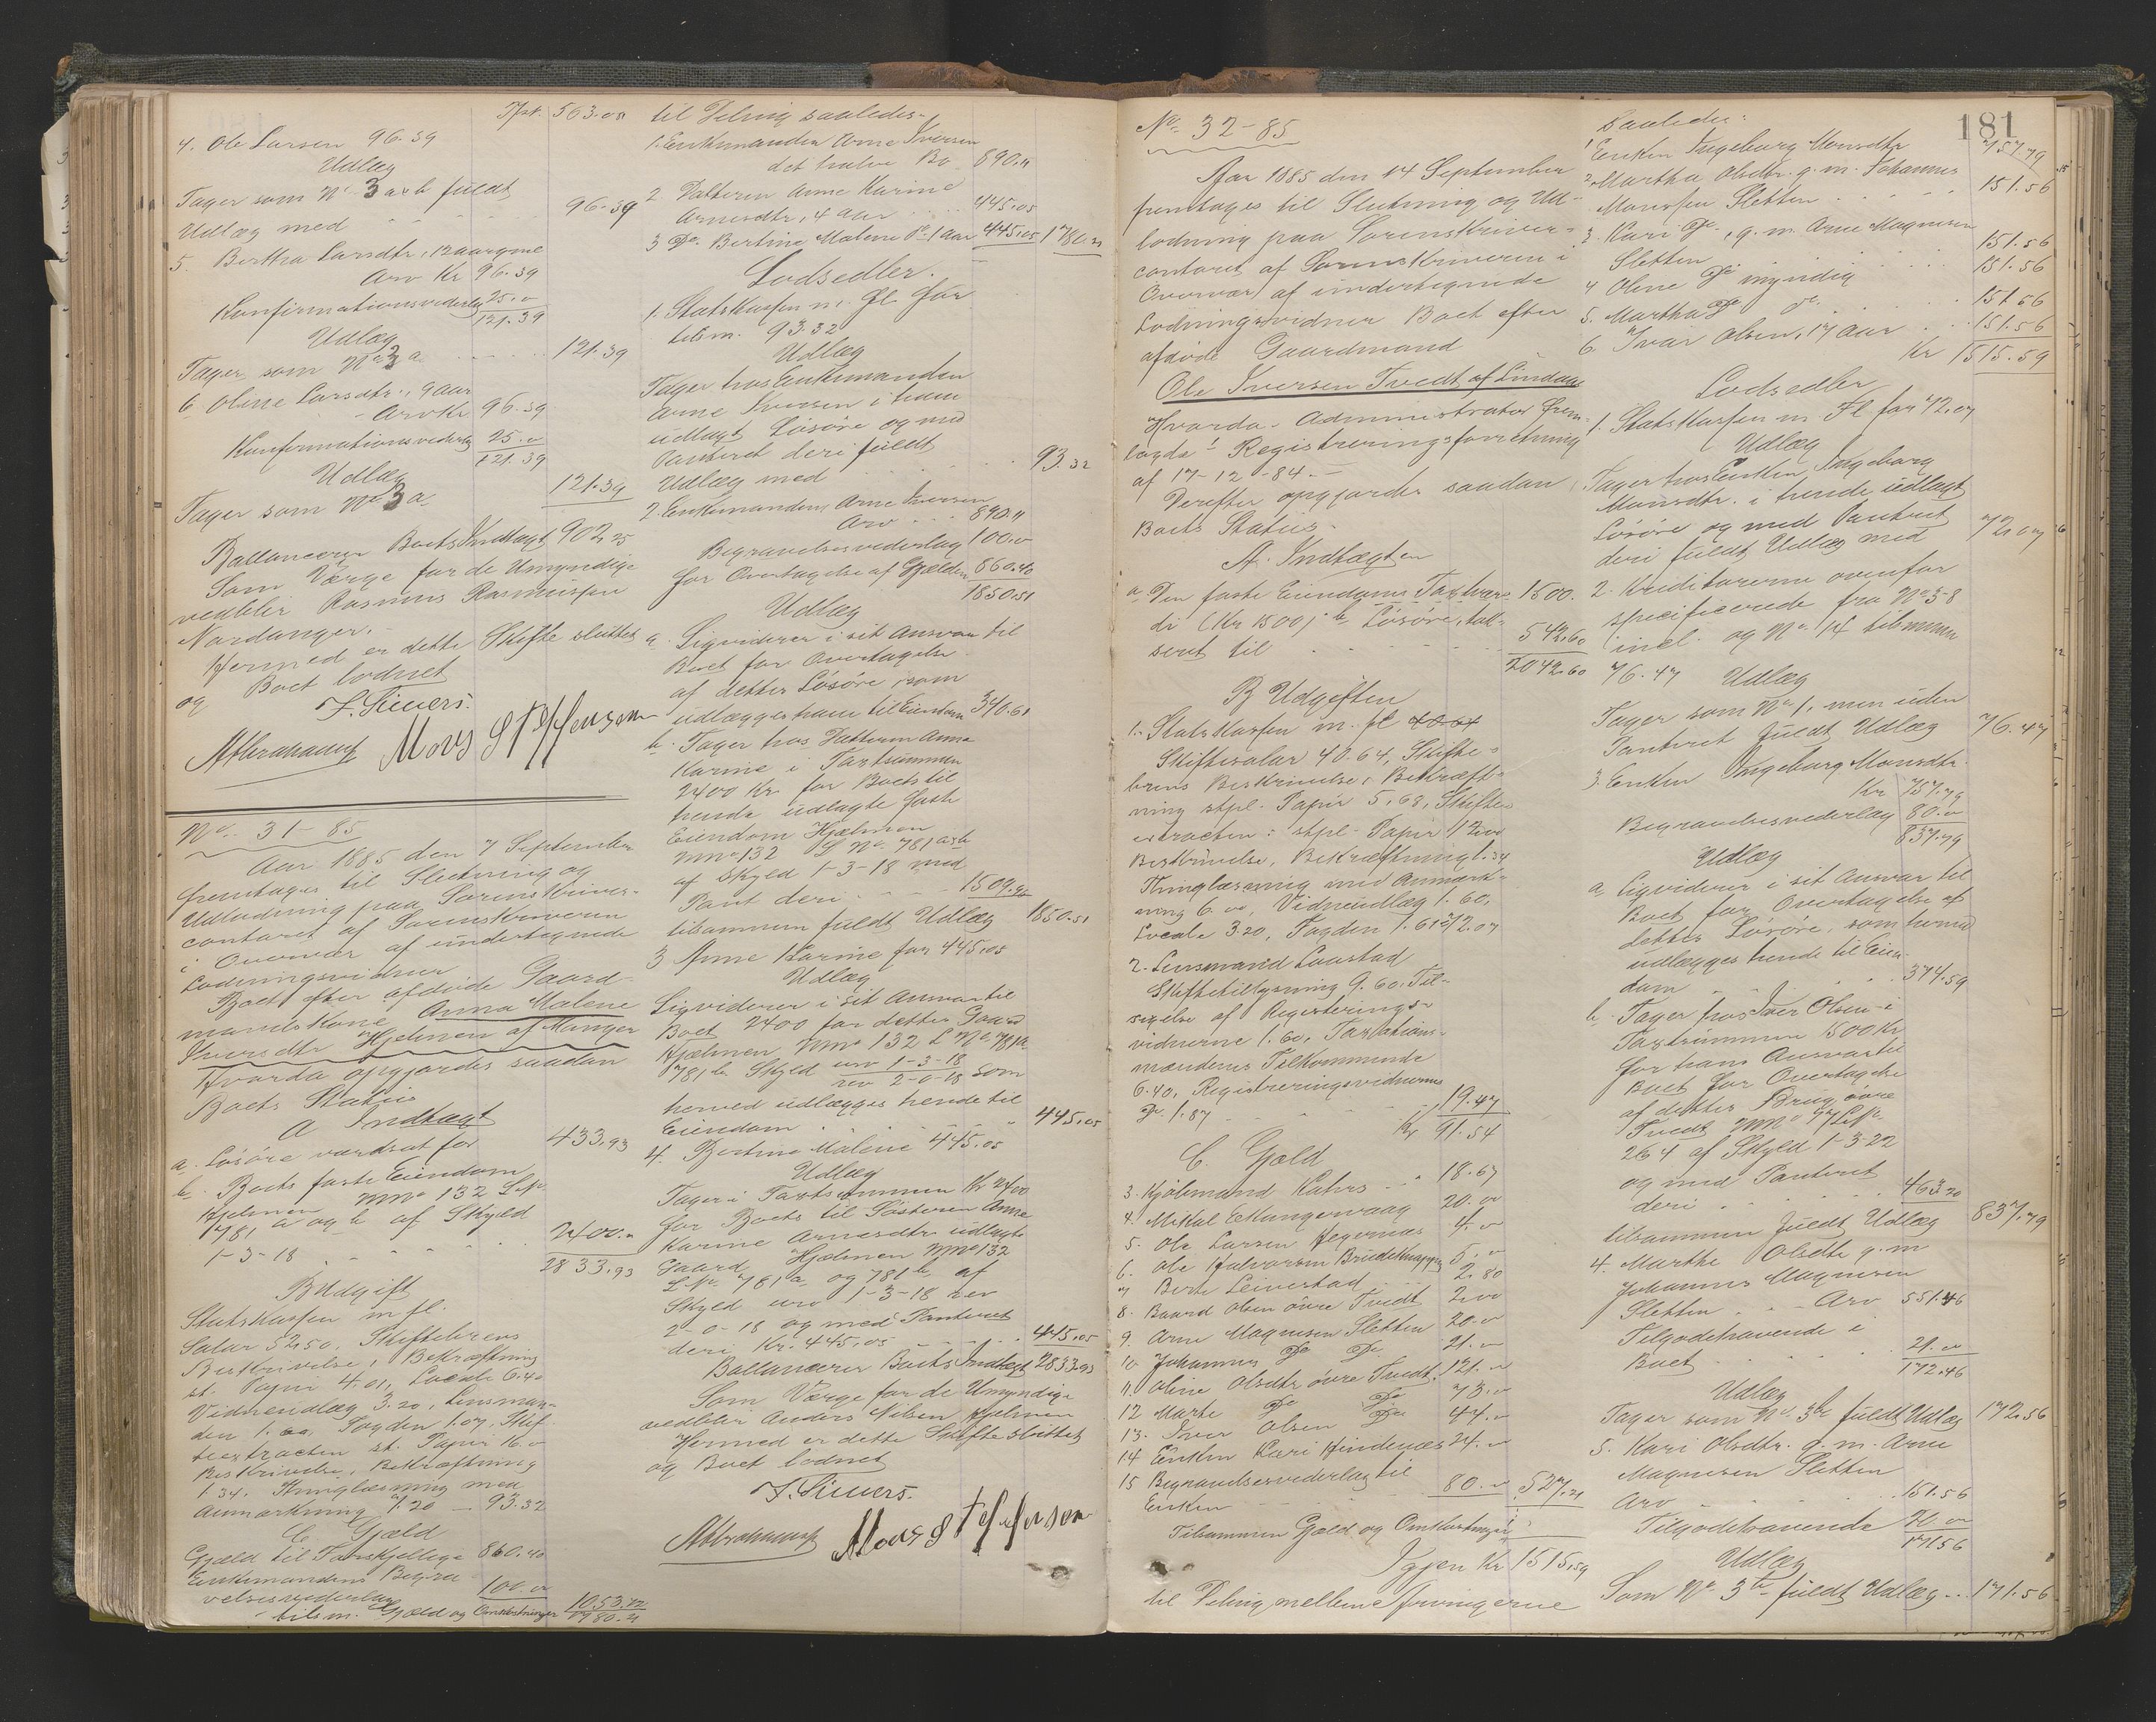 Tpt. 563.08
4. Ole Larsen 96.39
Udlæg
Tager som No 3 a & b fuldt
Udlæg med 96.39
5. Bertha Larsdtr, 12 aar gml
Arv Kr 96.39
Konfirmationsvederlag 25.00
121.39
Udlæg
Tager som No 3 a 121.39
6. Oline Larsdtr., 9 aar
Arv Kr 96.39
Konfirmationsvederlag 25.00
121.39
Udlæg
Tager som No 3 a 121.39
Ballancerer Boets Indtægt 902.25
Som Værge for de Umyndige
vedbliver Rasmus Rasmussen
Nordanger.
Hermed er dette Skifte sluttet
og Boet lodnet
F. Sievers.
Mons Steffensen
No. 31-85
Aar 1885 den 7 September
fremtages til Slutning og
Udlodning paa Sorenskriver-
contoret af Sorenskriveren
i Overvær af undertegnede
Lodningsvidner
Boet efter afdøde Gaard-
mandskone Anna Malene
Iversdtr Hjelmen af Manger
Hvorda opgjordes saadan
Boets Status
A Indtægt
a. Løsøre vurderet for 433.93
b. Boets faste Eiendom
Hjelmen mno 132 LNo
781 a og b af Skyld
1-3-18 2400.
2833.93
B Udgift
Statskassen m fl.
Salar 52.50, Skiftebrevs
Beskrivelse, Bekræftning
st. Papir 4.01, Locale 6.40
Vidneudlæg 3.20, Lensman-
den 1.60, Fogden 1.07, Skif-
teextracten st. Papir 16.00
Beskrivelse, Bekræftning
1.34. Thinglæsning med
Anmærkning 7.20 — 93.32
C Gjæld
Gjæld til Forskjellige 860.40
Enkemandens Begra-
velsesvederlag 100.00
tils m. Gjæld og Omkostninger 1053.72
1780.21
til Deling saaledes-
1. Enkemanden Arne Iversen
det halve Bo 890.11
2 Datteren Anne Karine
Arnesdtr, 4 aar 445.05
3 Do. Bertine Malene Do 1 aar 445.05 1780.21
Lodsedler.
1. Statskassen m. fl. for
tilsm. 93.32
Udlæg
Tager hos Enkemanden
Arne Iversen i ham
udlagt Løsøre og med
Panteret deri fuldt
Udlæg med 93.32
2. Enkemanden Arne Iversen
Arv 890.11
Begravelsesvederlag 100.00
for Overtagelse af Gjælden 860.40
1850.51
Udlæg
a. Liqviderer i sit Ansvar til
Boet for Overtagelse
af dettes Løsøre, som
udlægges ham til Eiendom 340.61
b. Tager hos Datteren Anne
Karine i Taxtsummen
2400 Kr for Boets til
hende udlagte faste
Eiendom Hjelmen
mno 132 L No. 781 a & b
af Skyld 1-3-18 med
Pant deri 1509.90
tilsammen fuldt Udlæg 1850.51
3 Anne Karine for 445.05
Udlæg
Liqviderer i sit Ansvar til
Boet 2400 for dettes Gaard
Hjelmen mno 132 L No 781 a
781 b Skyld urv 1-3-18
rev 2-0-18 som
herved udlægges hende til
Eiendom 445.05
4. Bertine Malene 445.05
Udlæg
Tager i Taxtsummen Kr 2400
for Boets til Søsteren Anne
Karine Arnesdtr udlagte
Gaard Hjelmen mno 132
LNo. 781 a og 781 b af
Skyld urv 1-3-18 rev
2-0-18 og med Panteret
deri Kr. 445.05 445.05
Ballancerer Boets Indtægt 2833.93
Som Værge for de Umyndige
vedbliver Anders Nilsen Hjelmen
Hermed er dette Skifte sluttet
og Boet lodnet
F. Sievers.
Mons Steffensen
181
No. 32-85
Aar 1885 den 14 September
fremtages til Slutning og Ud-
lodning paa Sorenskriver-
contoret af Sorenskriveren i
Overvær af undertegnede
Lodningsvidner Boet efter
afdøde Gaardmand
Ole Iversen Tvedt af Lindaas
Hvorda Administrator frem-
lagde: Registreringsforretning
af 17-12-84.—
Derefter opgjordes saadan
Boets Status-
A. Indtægten
a Den faste Eiendoms Taxtvær- 1500.
di (Kr 1500) b, Løsøre, tak-
seret til 542.60
2042.60
B Udgiften
1. Statskassen m. fl 40.64
Skiftesalar 40.64, Skifte-
brevs Beskrivelse, Bekræft-
ning stpl. Papir 5.68, Skifte-
extracten: stpl. Papir 12.00
Beskrivelse, Bekræftning 1.34
Thinglæsning med Anmærk-
ning 6.00, Vidneudlæg 1.60,
Locale 3.20, Fogden 1.61 72.07
2. Lensmand Laastad
Skiftetillysning 9.60. Til-
sigelse af Registerings-
vidnerne 1.60, Taxations-
mændenes Tilkommende
6.40, Registreringsvidnernes
Do. 1.87 19.47
Kr 91.54
C. Gjæld
3. Kjøbmand Kahrs 18.67
4. Mikal Eknangervaag 20.00
5. Ole Larsen Fegernæs 4.00
6. Ole Halvorsen Brudeknappen 5.00
7 Berte Leivestad 2.80
8. Baard Olsen øvre Tvedt 2.00
9. Arne Magnesen Sletten 20.00
10 Johannes Do Do. 21.00
11. Oline Olsdtr øvre Tvedt. 121.00
12 Marte Do Do 73.00
13. Iver Olsen Do 44.00
14 Enken Kari Hindenæs 24.00
15 Begravelsesvederlag til
Enken 80.00 527.01
Tilsammen Gjæld og Omkostninger
Igjen Kr 1515.59
til Deling mellem Arvingerne
saaledes:
1 Enken Ingeborg Monsdtr 757.79
2 Martha Olsdtr. g. m. Johannes
Monssen Sletten 151.56
3. Kari Do., g. m. Arne Magnesen
Sletten 151.56
4 Oline Do myndig 151.56
5. Martha Do do. 151.56
6. Ivar Olsen, 17 aar 151.56
Kr 1515.59
Lodsedler
1. Statskassen m. Fl. for 72.07
Udlæg
Tager hos Enken Ingeborg
Monsdtr. i hende udlagt
Løsøre og med Panteret
deri fuldt Udlæg med 72.07
2. Kreditorerne ovenfor
specificerede fra No 3-8
incl. og No. 14 tilsammen
76.47 Udlæg
Tager som No 1, men uden
Panteret fuldt Udlæg 76.47
3. Enken Ingeborg Monsdtr.
Kr 757.79
Begravelsesvederlag 80.00
837.79
Udlæg
a Liqviderer i sit Ansvar til
Boet for Overtagelse af
dettes Løsøre, som herved
udlægges hende til Eien-
dom 374.59
b. Tager hos Iver Olsen i
Taxtsummen 1500 Kr
for hans Ansvar til
Boet for Overtagelse
af dettes Brug øvre
Tvedt mno 97 LNo.
264 af Skyld 1-3-22
og med Panteret
deri 463.20
tilsammen fuldt Udlæg 837.79
4. Marthe Olsdtr g. m
Johannes Magnesen
Sletten Arv 151.46
Tilgodehavende i
Boet 21.00
172.46
Udlæg
Tager som No. 3 b fuldt Udlæg 172.56
5. Kari Olsdtr. g. m. Arne
Magnesen Sletten
Arv 151.56
Tilgodehavende 20.00
171.56
Udlæg
Som No 3 b fuldt Udlæg 171.56